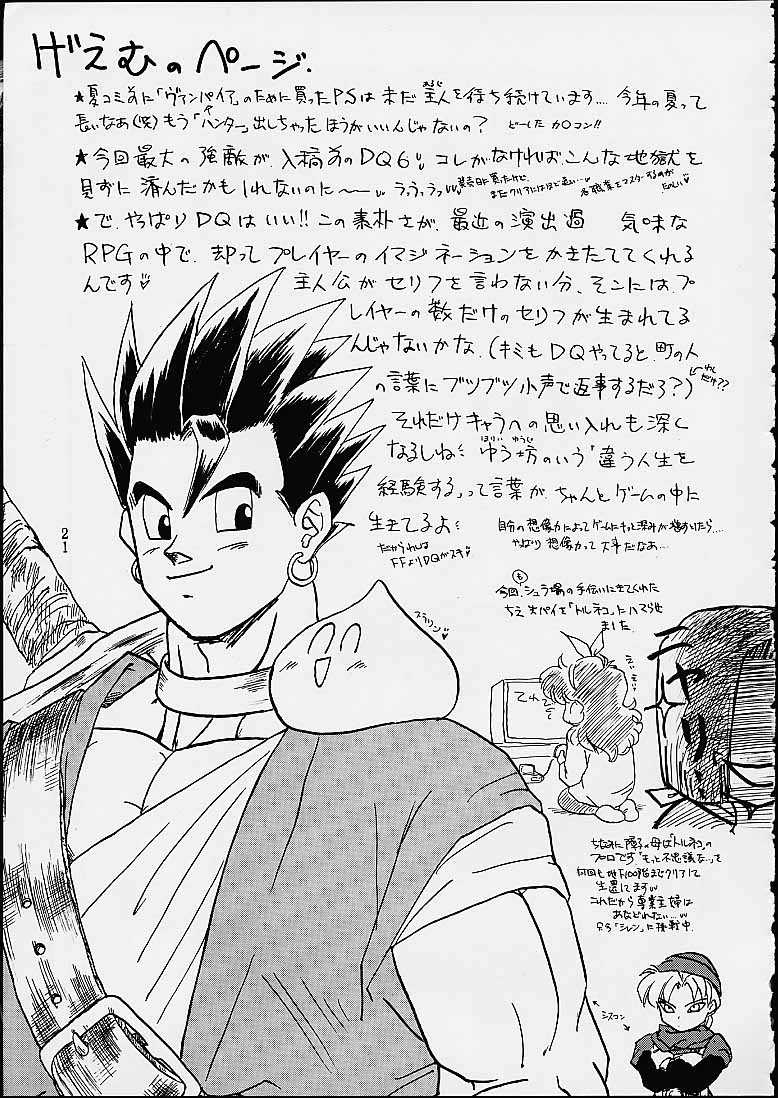 げえむのページ.
★夏コミ前に「ヴァンパイア」のために買ったPSは未だ主人を待ち続けています.... 今年の夏って
長いなあ(笑)もう「ハンター」出しちゃったほうがいいんじゃないの? どーしたカ〇コン!!
★今回最大の強敵が、入稿前のDQ6 コレがなければこんな地獄を
見ずに済んだかもしれないのに〜〜 うふうっうっ
発売日に買ったけど、
まだクリアにはほど遠い...
各職業をマスターするのが
たのしい
★で、やっぱりDQはいい!! この素朴さが、最近の演出過 気味な
RPGの中で、却ってプレイヤーのイマジネーションをかきたててくれる
んです 主人公がセリフを言わない分、そこにはプ
レイヤーの数だけのセリフが生まれてる
んじゃないかな、(キミもDQやってると、町の人
の言葉にブツブツ小声で返事するだろ?)
わし
だけ??
それだけキャラへの思い入れも深く
なるしね
ゆう坊のいう「違う人生を
ほりい ゆうじ
経験する」って言葉が、ちゃんとゲームの中に
生きてるよ
だからわれは
FFよりDQがスキ
自分の想像力によってゲームにもっと深みが増すけたら...
やっぱり想像力って大事だなあ...
今回も、シュラ場の手伝いにきてくれた
ちえ
パイを「トルネコ」にハマらせ
ました
スラリン
てれ
ニヤリ
21
ちなみに
の母は「トルネコ」の
プロです「もっと不思議」だって
何回も地下100階までクリアして
生還してます
これだから専業主婦は
あなどれない...
只今「シレン」に挑戦中.
シスコン